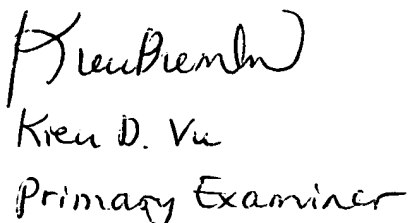 Kieu D. Vu
Primary Examiner